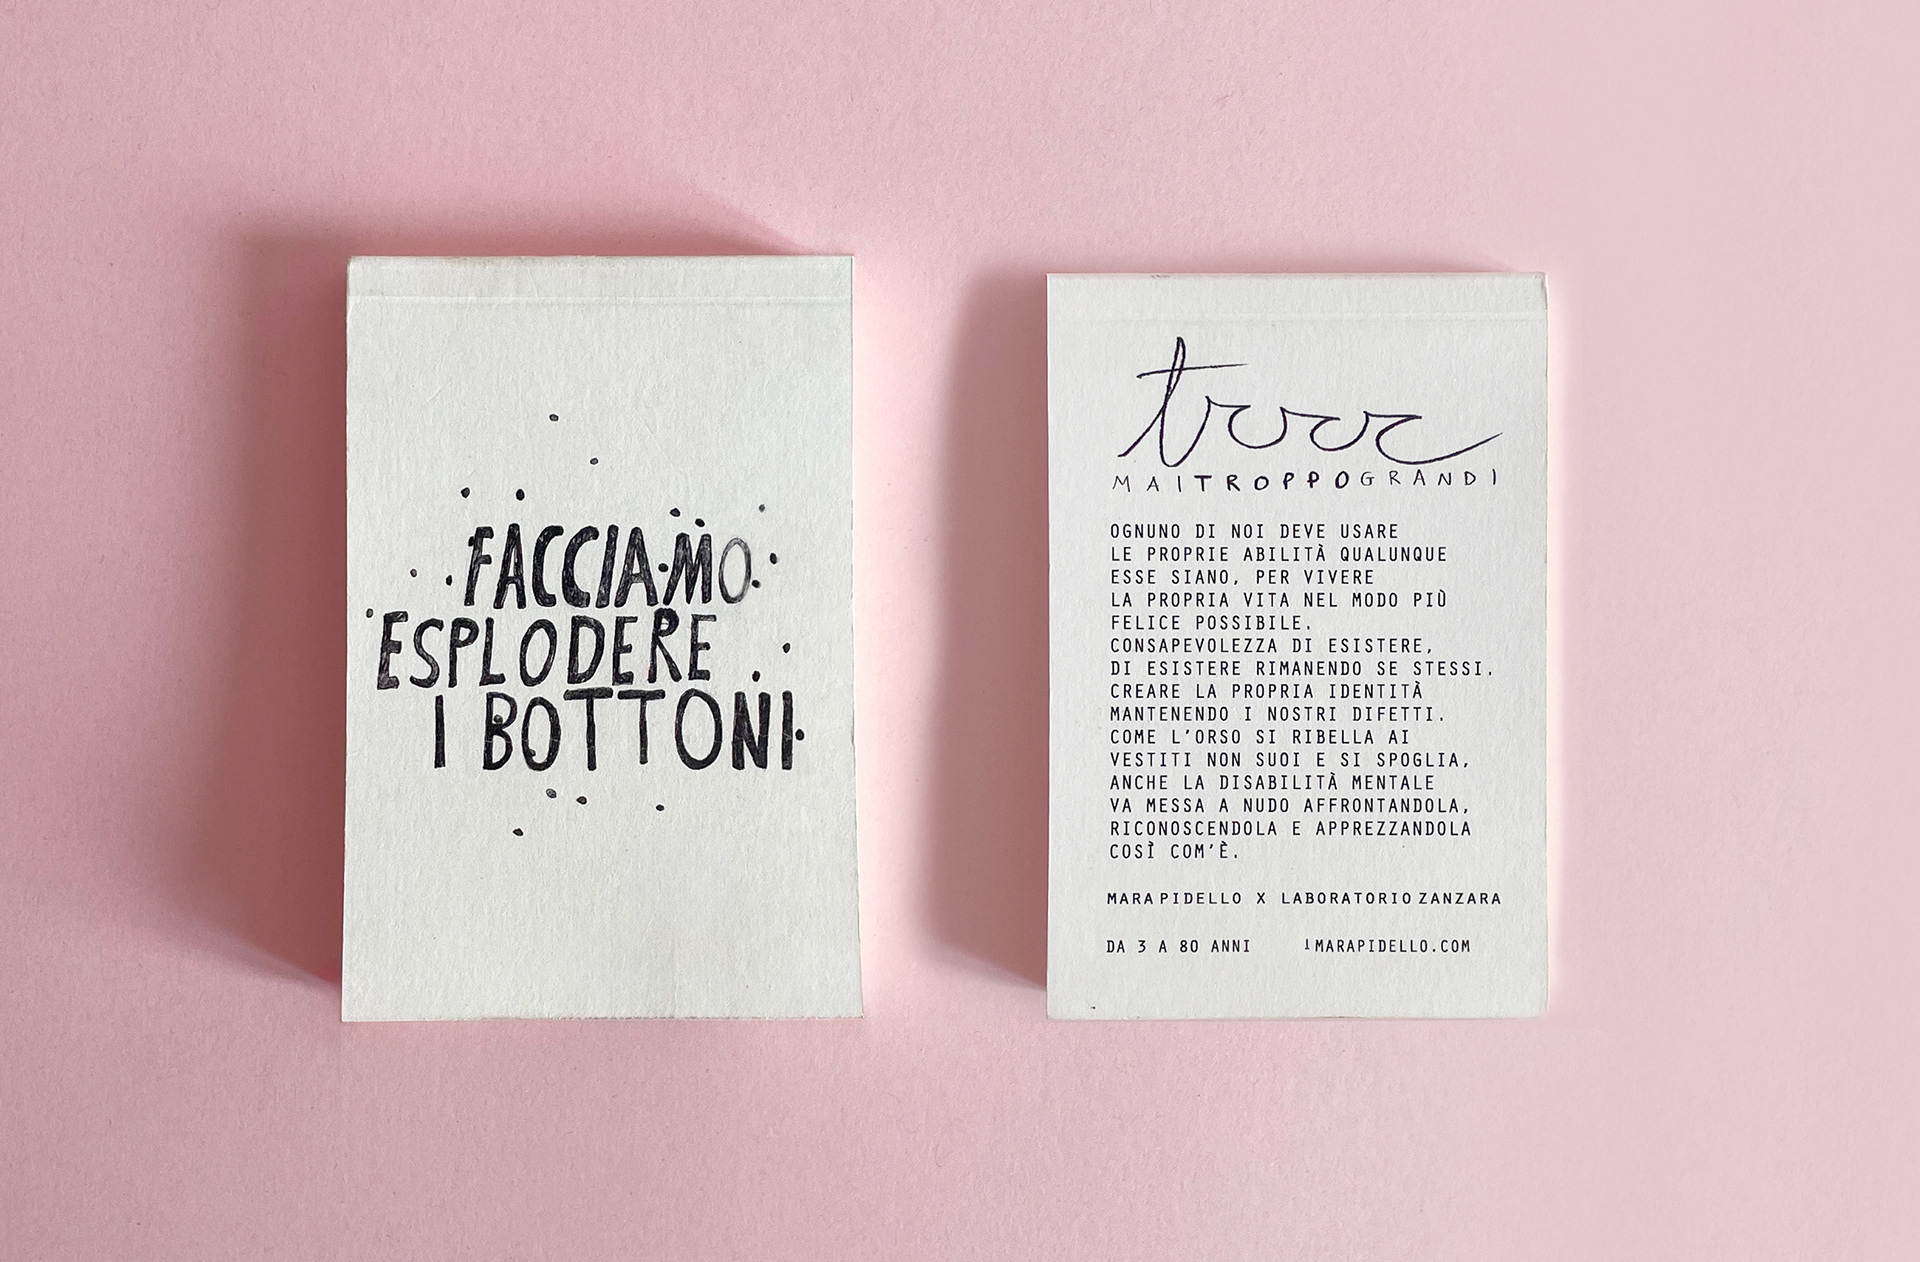 FACCIAMO
ESPLODERE
I BOTTONI
trrr
MAITROPPOGRANDI
OGNUNO DI NOI DEVE USARE
LE PROPRIE ABILITÀ QUALUNQUE
ESSE SIANO, PER VIVERE
LA PROPRIA VITA NEL MODO PIÙ
FELICE POSSIBILE.
CONSAPEVOLEZZA DI ESISTERE,
DI ESISTERE RIMANENDO SE STESSI.
CREARE LA PROPRIA IDENTITÀ
MANTENENDO I NOSTRI DIFETTI.
COME L'ORSO SI RIBELLA AI
VESTITI NON SUOI E SI SPOGLIA,
ANCHE LA DISABILITÀ MENTALE
VA MESSA A NUDO AFFRONTANDOLA,
RICONOSCENDOLA E APPREZZANDOLA
COSÌ COM'È.
MARA PIDELLO X LABORATORIO ZANZARA
DA 3 A 80 ANNI 1MARAPIDELLO.COM